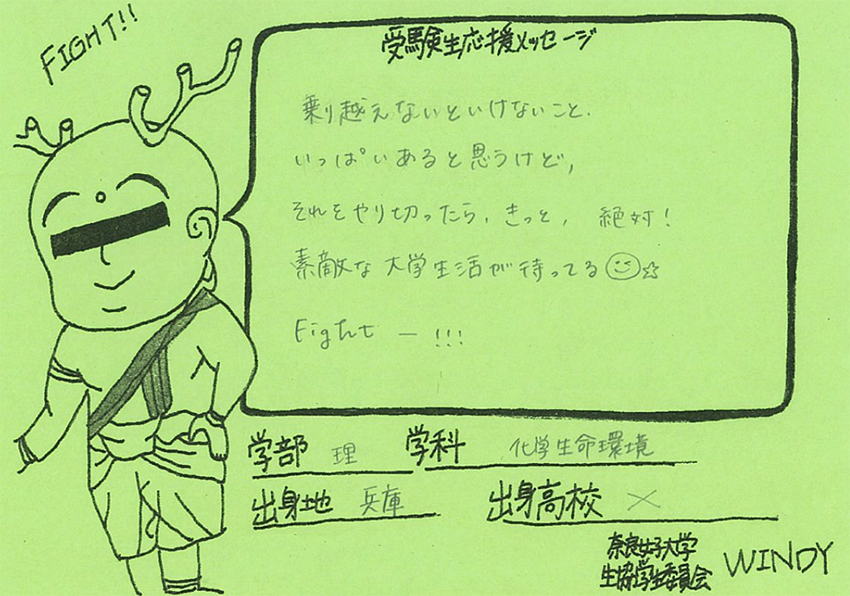 FIGHT!!
受験生応援メッセージ
乗り越えないといけないこと.
いっぱいあると思うけど,
それをやり切ったら, きっと, 絶対!
素敵な大学生活が待ってる
Fight ー !!!
学部 理 学科 化学生命環境
出身地 兵庫 出身高校 ×
奈良女子大学
生協学生委員会 WINDY